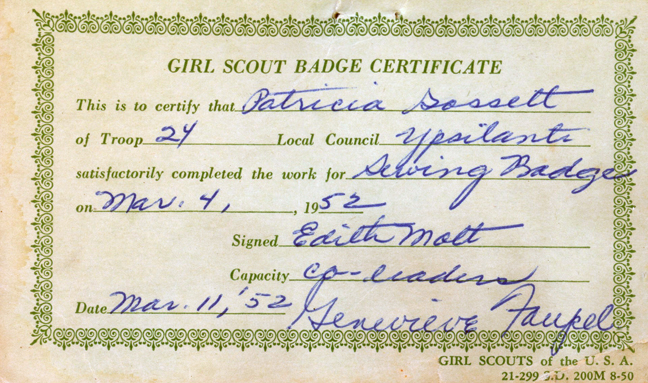 GIRL SCOUT BADGE CERTIFICATE
This is to certify that Patricia Gossett
of Troop 24 Local Council Ypsilanti
satisfactorily completed the work for Sewing Badge
on Mar. 4, , 1952
Signed Edith Mott
Capacity Co-leaders
Date Mar. 11, '52 Genevieve Faupel
GIRL SCOUTS of the U. S. A.
21-299 S.D. 200M 8-50